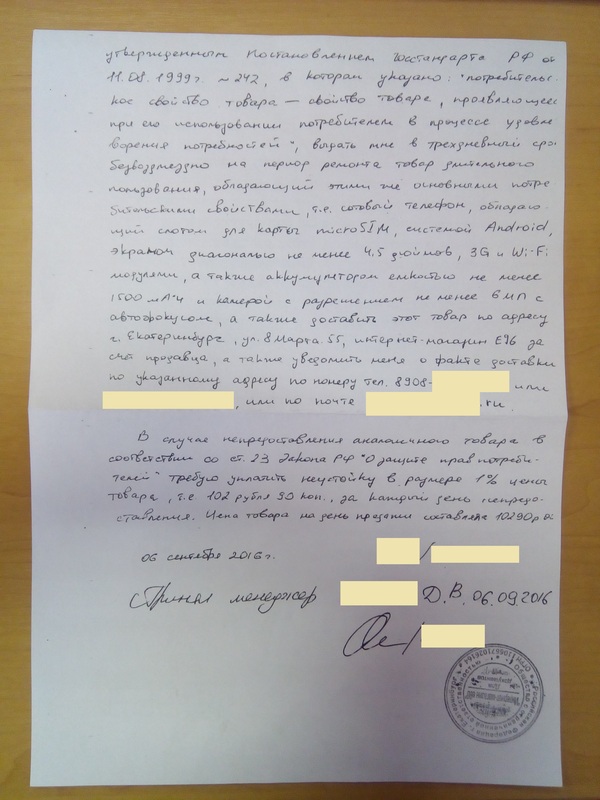 утвержденным Постановлением Госстандарта РФ от
11.08.1999г. ~242, в котором указано: "потребительс-
кое свойство товара — свойство товара, проявляющееся
при его использовании потребителем в процессе удовле
ворения потребностей", выдать мне в трехдневный срок
безвозмездно на период ремонта товар длительного
пользования, обладающий этими же основными потре
бительскими свойствами, т.е. сотовый телефон, обладаю-
щий слотом для карты microSIM, системой Android,
экраном диагональю не менее 4.5 дюймов, 3G и Wi-Fi
модулями, а также аккумулятором емкостью не менее
1500 мА·ч и камерой с разрешением не менее 6 МП с
автофокусом, а также доставить этот товар по адресу
г. Екатеринбург, ул. 8 Марта 55, интернет-магазин Е96 за
счёт продавца, а также уведомить меня о факте доставки
по указанному адресу по номеру тел. 8908- или
, или по почте .ru.
В случае непредоставления аналогичного товара в
соответствии со ст. 23 Закона РФ "О защите прав потреби-
телей" требую уплатить неустойку в размере 1% цены
товара, т.е. 102 рубля 90 коп., за каждый день непредо-
ставления. Цена товара на день продажи составляла 10290р
06 сентября 2016г. /
Принял менеджер Д.В. 06.09.2016